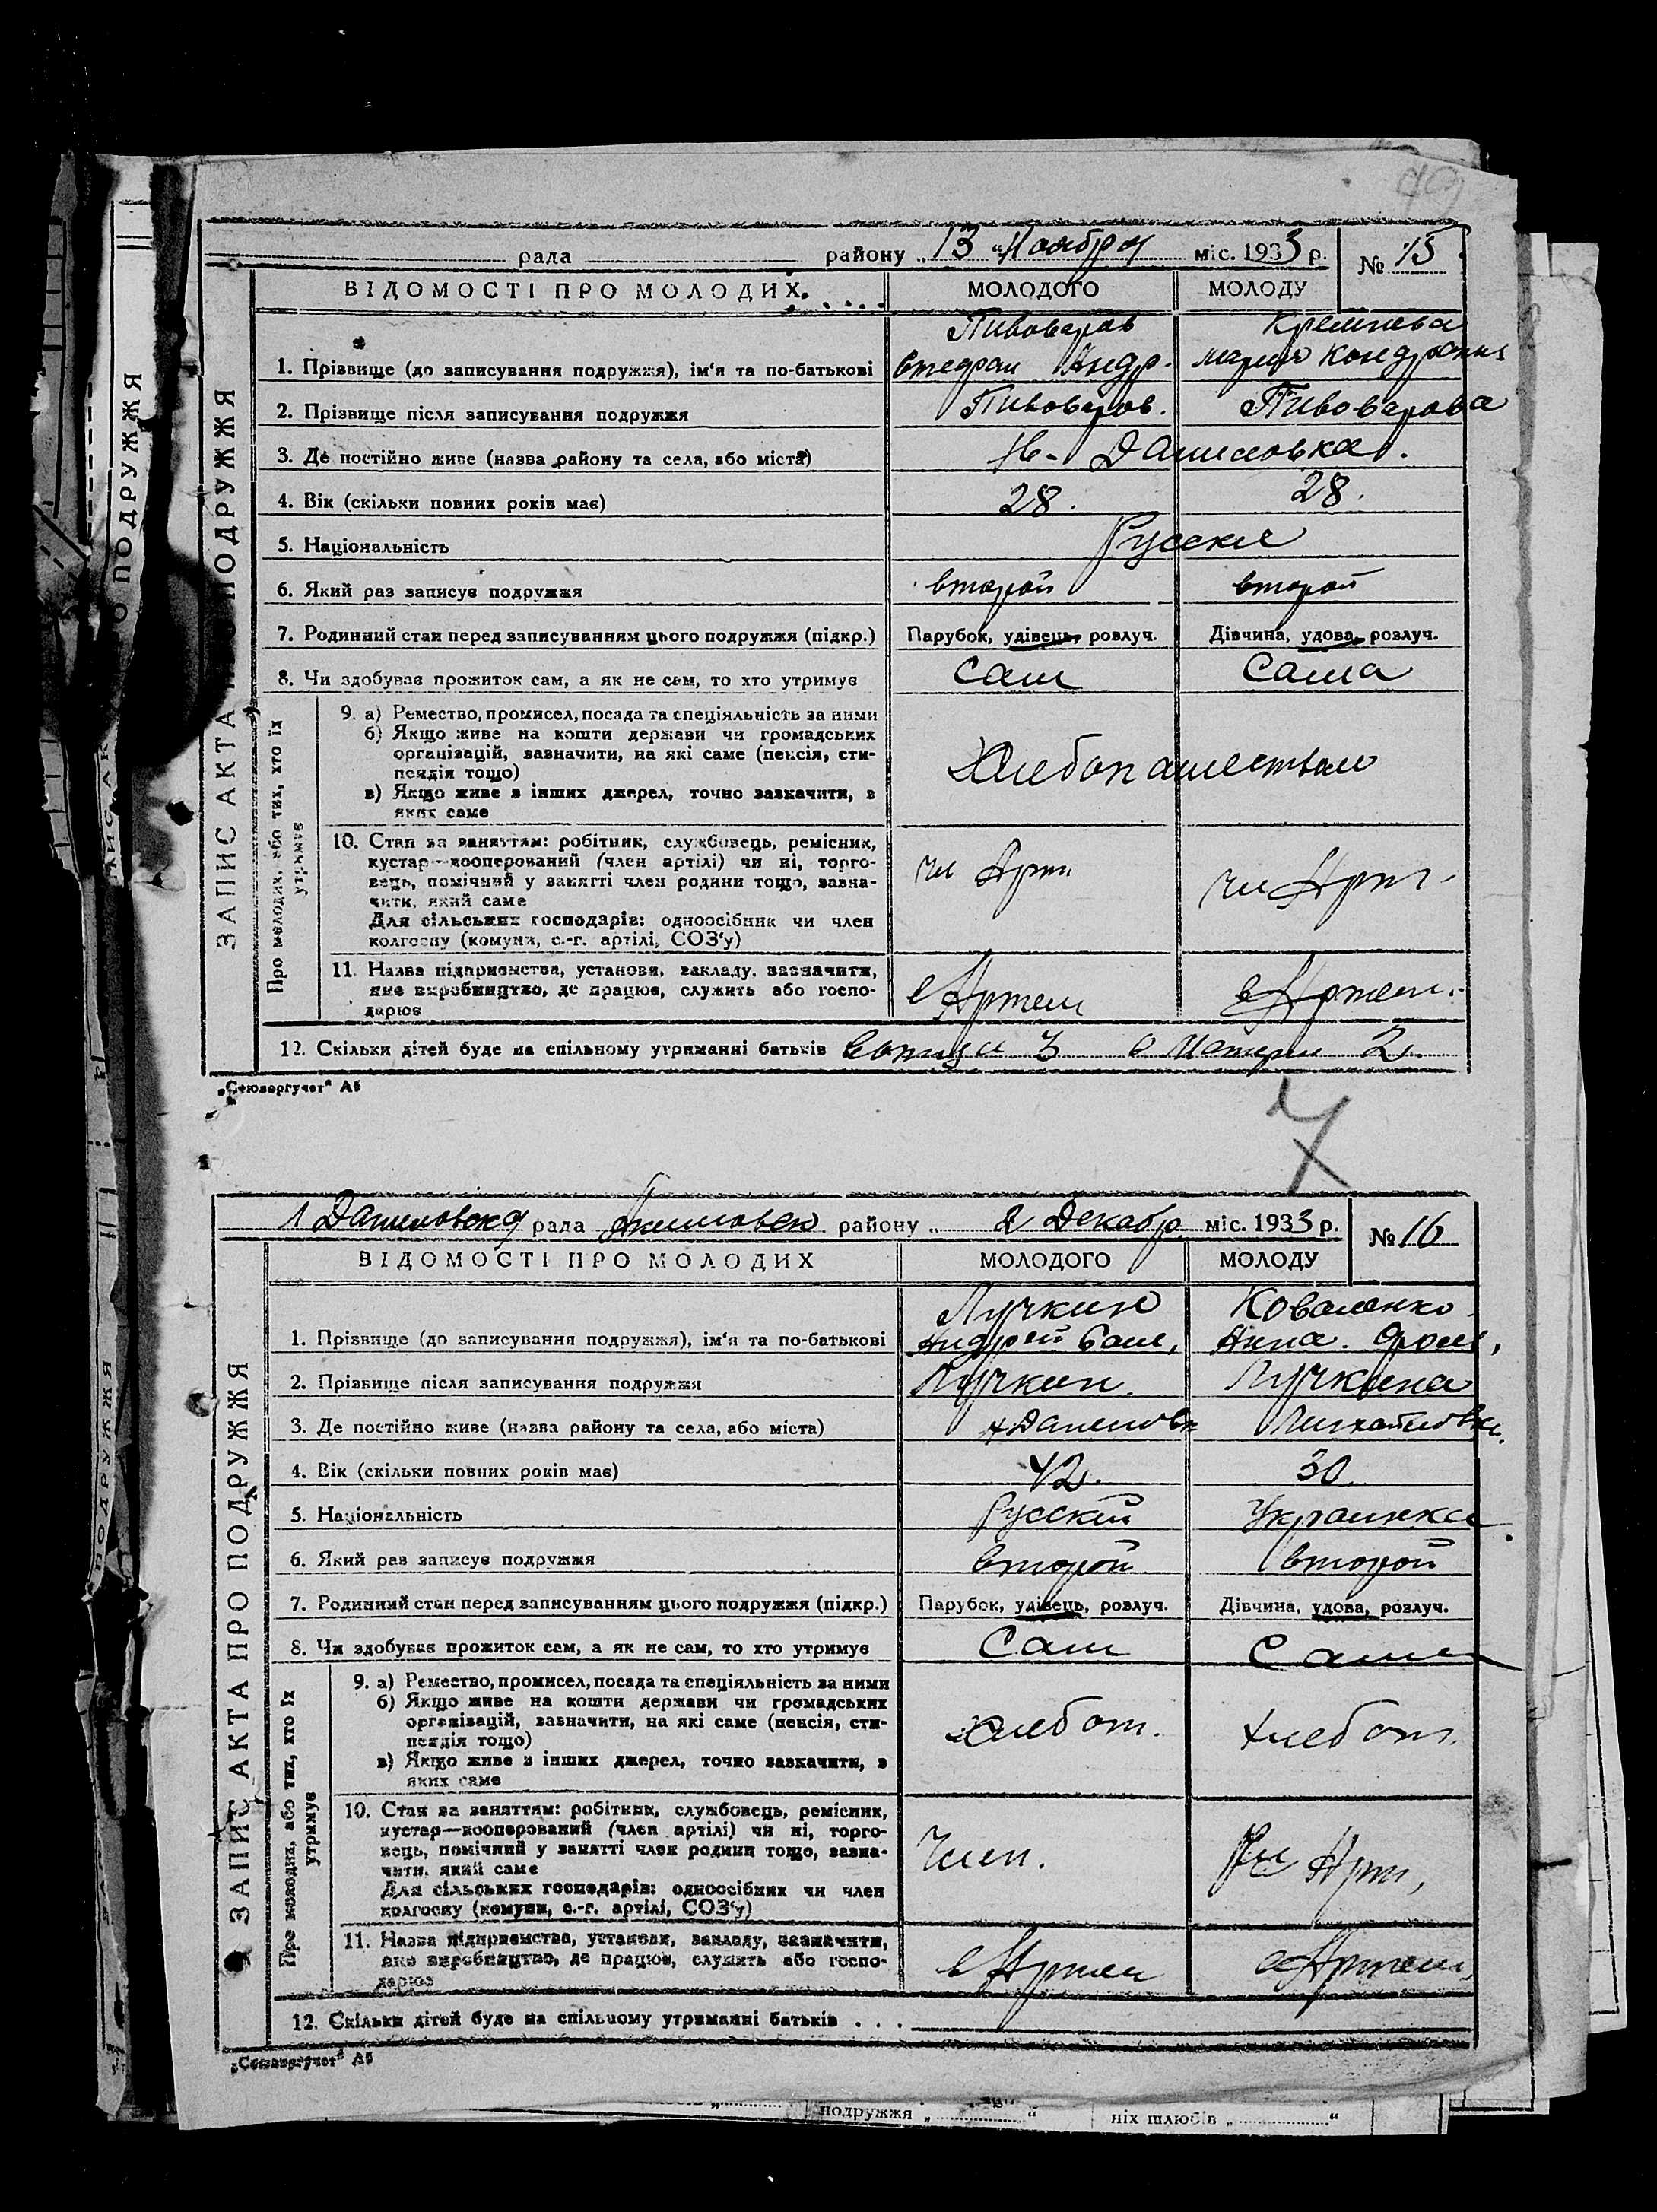 рада району „ 13 " Ноября міс. 1933 р. № 15
ВІДОМОСТІ ПРО МОЛОДИХ МОЛОДОГО МОЛОДУ
ЗАПИС АКТА ПРО ПОДРУЖЖЯ
Пивоваров Кремнева
1. Прізвище (до записування подружжя), ім'я та по-батькові Андр. Мария
2. Прізвище після записування подружжя Пивоваров. Пивоварова
3. Де постійно живе (назва району та села, або міста) Н- Даниловка.
4. Вік (скільки повних років має) 28. 28.
5. Національність Русские
6. Який раз записує подружжя второй второй
7. Родинний стан перед записуванням цього подружжя (підкр.) Парубок, удівець, розлуч. Дівчина, удова, розлуч.
8. Чи здобуває прожиток сам, а як не сам, то хто утримує Сам Сама
Про молодих, або тих, хто їх утримує
9. а) Ремество, промисел, посада та спеціяльність за ними
б) Якщо живе на кошти держави чи громадських
організацій, зазначити, на які саме (пенсія, сти-
пендія тощо)
в) Якщо живе з інших джерел, точно зазначити, з
яких саме
Хлебопашеством
10. Стан за заняттям: робітник, службовець, ремісник,
кустар—кооперований (член артілі) чи ні, торго-
вець, помічний у занятті член родини тощо, зазна-
чити, який саме
Для сільських господарів: одноосібник чи член
колгоспу (комуни, с.-г. артілі, СОЗ'у)
чл Арт. чл Арт.
11. Назва підприємства, установи, закладу, зазначити,
яке виробництво, де працює, служить або госпо-
дарює
в Артели в Артели
12. Скільки дітей буде на спільному утриманні батьків в отца 3 в Матери 2.
„Союзоргучет" А5
1 Даниловская рада Акимовск району „ 2 Декабр. міс. 1933 р. № 16
ВІДОМОСТІ ПРО МОЛОДИХ МОЛОДОГО МОЛОДУ
ЗАПИС АКТА ПРО ПОДРУЖЖЯ
Лучкин Коваленко
1. Прізвище (до записування подружжя), ім'я та по-батькові Андрей Анна.
2. Прізвище після записування подружжя Лучкин. Лучкина
3. Де постійно живе (назва району та села, або міста) Даниловк Михайловк.
4. Вік (скільки повних років має) 42. 30
5. Національність Русский Украинка
6. Який раз записує подружжя второй второй
7. Родинний стан перед записуванням цього подружжя (підкр.) Парубок, удівець, розлуч. Дівчина, удова, розлуч.
8. Чи здобуває прожиток сам, а як не сам, то хто утримує Сам Сама
Про молодих, або тих, хто їх утримує
9. а) Ремество, промисел, посада та спеціяльність за ними
б) Якщо живе на кошти держави чи громадських
організацій, зазначити, на які саме (пенсія, сти-
пендія тощо)
в) Якщо живе з інших джерел, точно зазначити, з
яких саме
хлебоп. хлебоп.
10. Стан за заняттям: робітник, службовець, ремісник,
кустар—кооперований (член артілі) чи ні, торго-
вець, помічний у занятті член родини тощо, зазна-
чити, який саме
Для сільських господарів: одноосібник чи член
колгоспу (комуни, с.-г. артілі, СОЗ'у)
Член. Чл Арт,
11. Назва підприємства, установи, закладу, зазначити,
яке виробництво, де працює, служить або госпо-
дарює
в Артели в Артели
12. Скільки дітей буде на спільному утриманні батьків . . .
„Союзоргучет" А5
подружжя „ " ніх шлюбів „ "